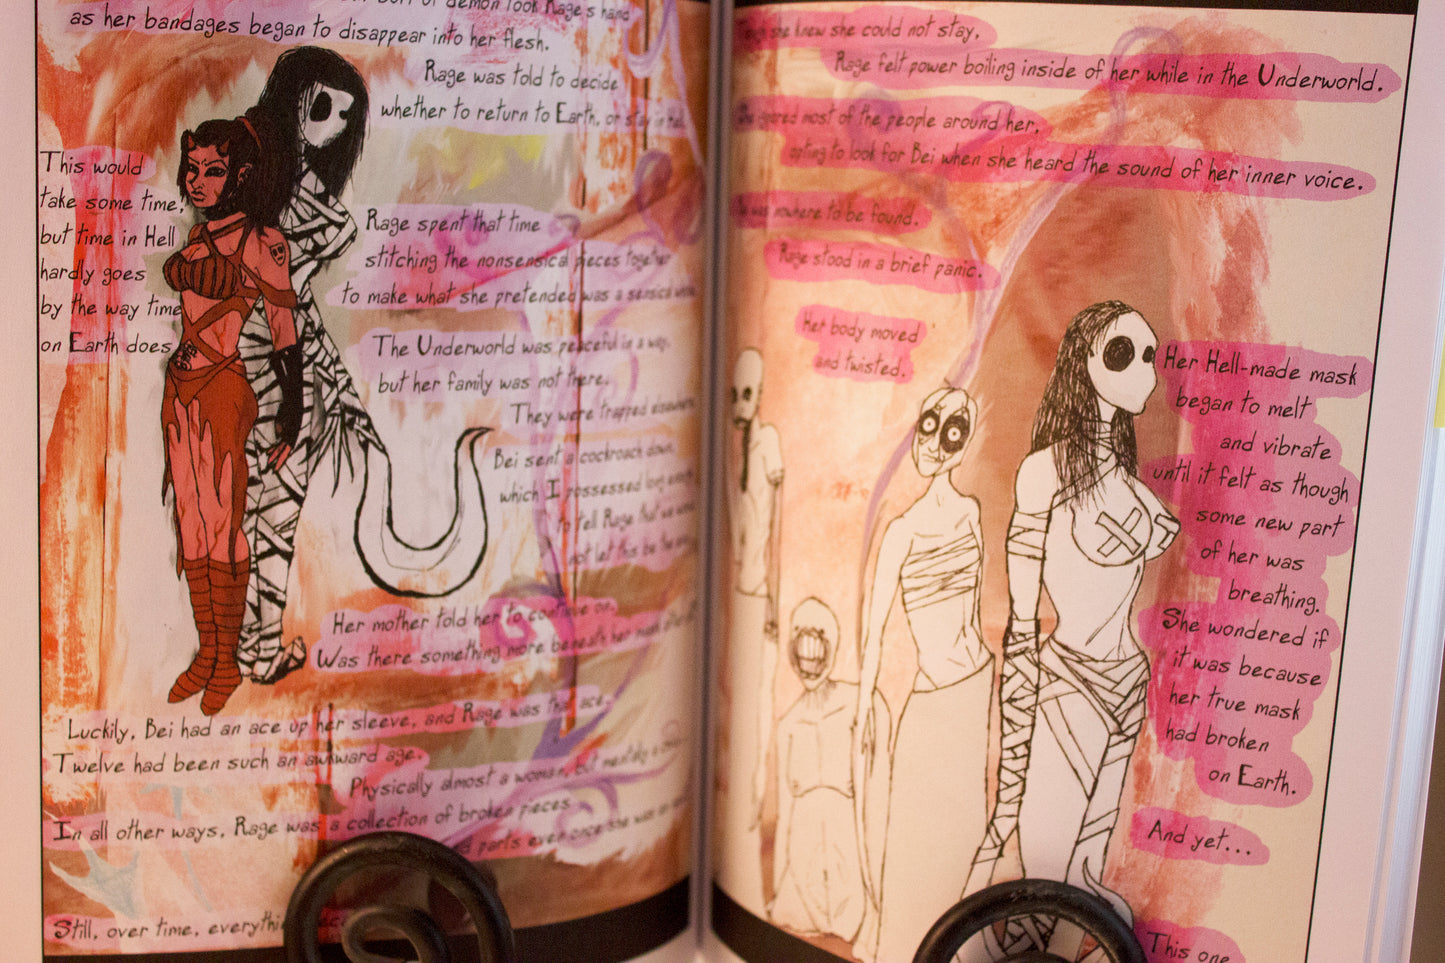 of demon took Rage's hand
as her bandages began to disappear into her flesh.
Rage was told to decide
whether to return to Earth, or stay in
This would
take some time,
but time in Hell
hardly goes
by the way time
on Earth does.
Rage spent that time
stitching the nonsensical pieces together
to make what she pretended was a sensical
The Underworld was peaceful in a way,
but her family was not there.
They were trapped elsewhere
Bei sent a cockroach down,
which I possessed long enough
to tell Rage that we would
not let this be the
Her mother told her to continue on.
Was there something more beneath her mask
Luckily, Bei had an ace up her sleeve, and Rage was that ace.
Twelve had been such an awkward age.
Physically almost a woman, but mentally a
In all other ways, Rage was a collection of broken pieces
parts even once she was
Still, over time,
she knew she could not stay,
Rage felt power boiling inside of her while in the Underworld.
She ignored most of the people around her,
opting to look for Bei when she heard the sound of her inner voice.
was nowhere to be found.
Rage stood in a brief panic.
Her body moved
and twisted.
Her Hell-made mask
began to melt
and vibrate
until it felt as though
some new part
of her was
breathing.
She wondered if
it was because
her true mask
had broken
on Earth.
And yet...
This one